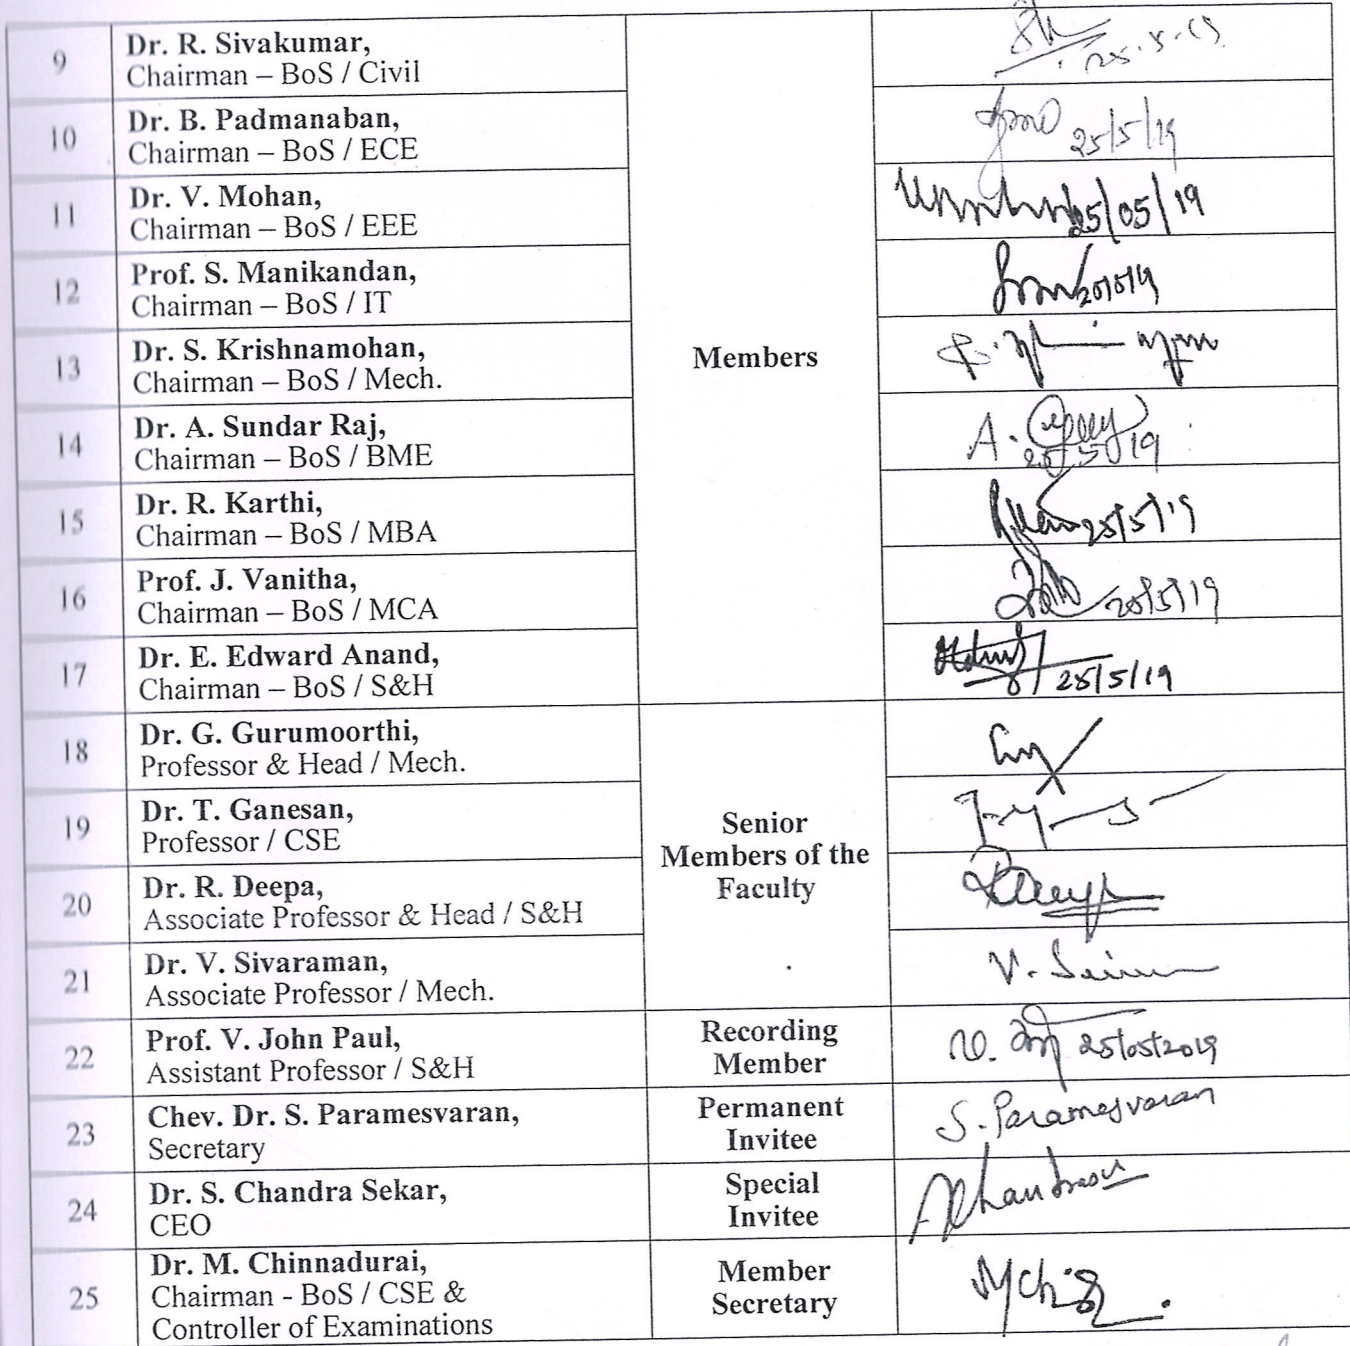 9
Dr. R. Sivakumar,
Chairman – BoS / Civil
25.5.19
10
Dr. B. Padmanaban,
Chairman – BoS / ECE
25/5/19
11
Dr. V. Mohan,
Chairman – BoS / EEE
25/05/19
12
Prof. S. Manikandan,
Chairman – BoS / IT
13
Dr. S. Krishnamohan,
Chairman – BoS / Mech.
Members
14
Dr. A. Sundar Raj,
Chairman – BoS / BME
A.
15
Dr. R. Karthi,
Chairman – BoS / MBA
25/5/19
16
Prof. J. Vanitha,
Chairman – BoS / MCA
25/5/19
17
Dr. E. Edward Anand,
Chairman – BoS / S&H
25/5/19
18
Dr. G. Gurumoorthi,
Professor & Head / Mech.
19
Dr. T. Ganesan,
Professor / CSE
Senior
Members of the
Faculty
20
Dr. R. Deepa,
Associate Professor & Head / S&H
21
Dr. V. Sivaraman,
Associate Professor / Mech.
V.
22
Prof. V. John Paul,
Assistant Professor / S&H
Recording
Member
25/05/2019
23
Chev. Dr. S. Paramesvaran,
Secretary
Permanent
Invitee
S. Paramesvaran
24
Dr. S. Chandra Sekar,
CEO
Special
Invitee
25
Dr. M. Chinnadurai,
Chairman - BoS / CSE &
Controller of Examinations
Member
Secretary